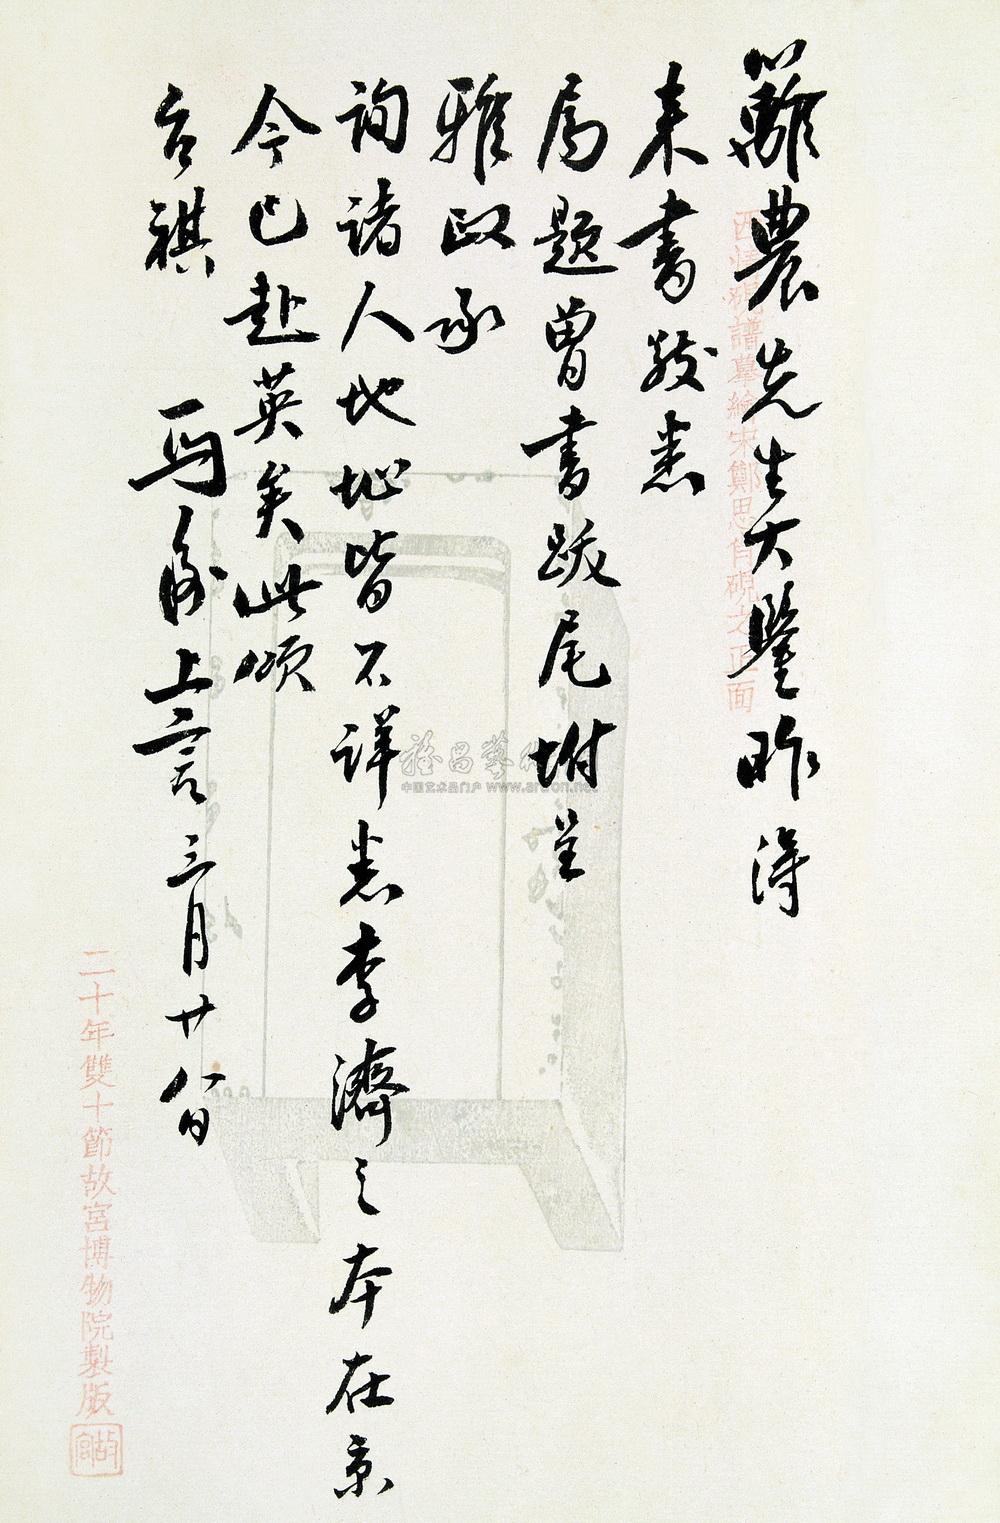 籬農先生大鑒昨得
来書敬悉
属題曾書跋尾坿呈
雅政承
詢諸人地址皆不詳悉李濟之本在京
今已赴英矣此頌
台祺 馬衡上言三月廿八日
西清硯譜摹繪宋鄭思肖硯之正面
二十年雙十節故宮博物院製版
故宮
雅昌藝術
中国艺术品门户 www.artron.net